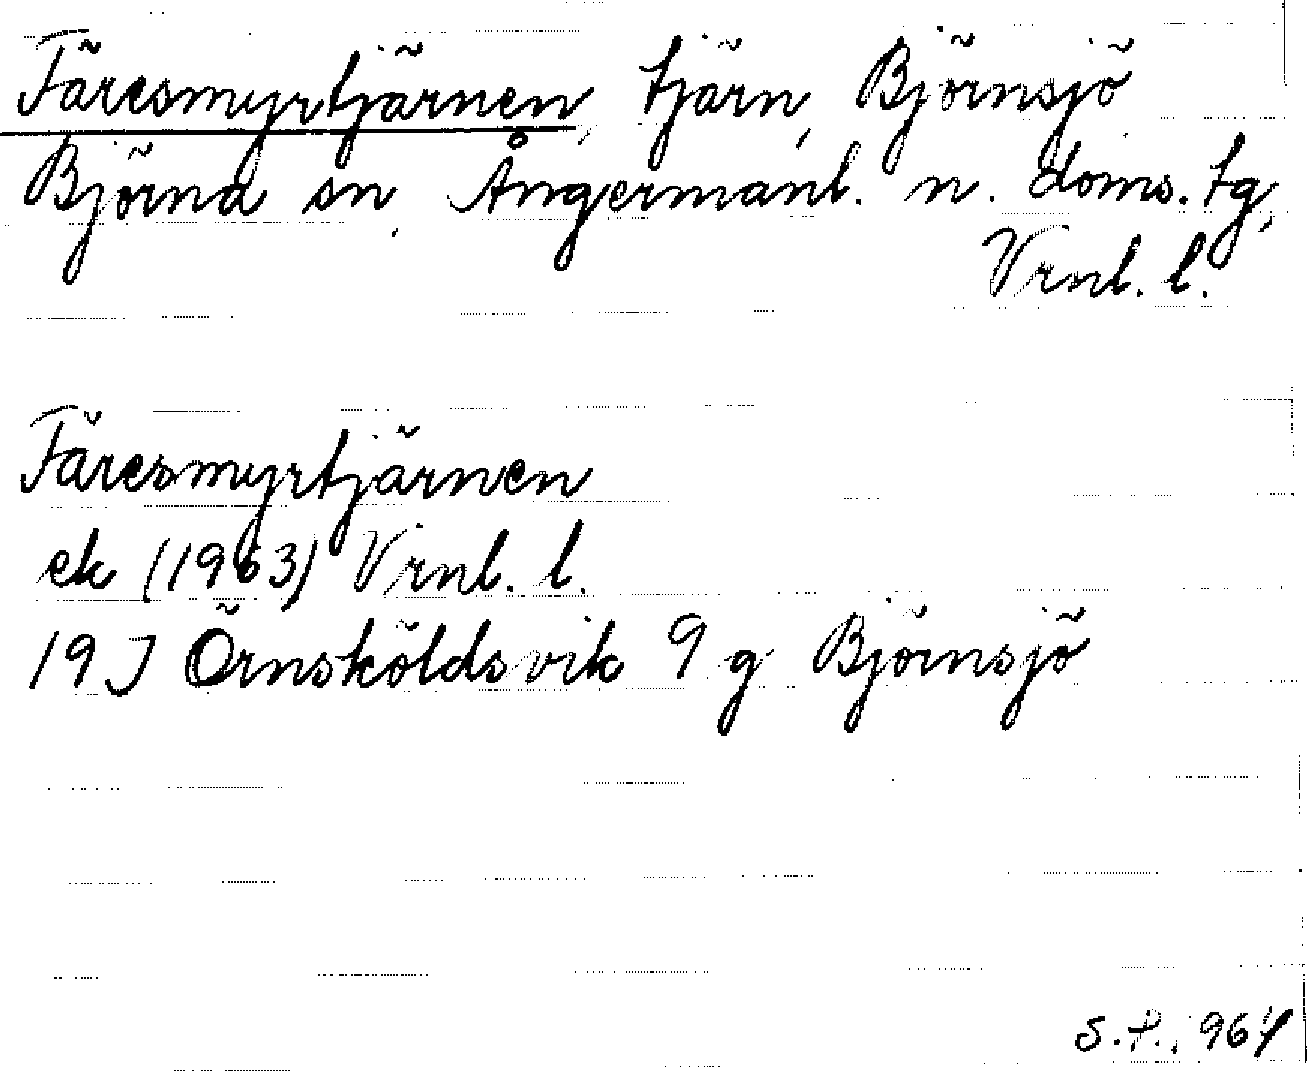 Täresmyrtjärnen, tjärn, Björnsjö
Björna sn, Ångermanl. n. doms. tg,
Vrnl. l.
Täresmyrtjärnen
ek (1963) Vrnl. l.
19 J Örnsköldsvik 9 g Björnsjö
S.P., 964